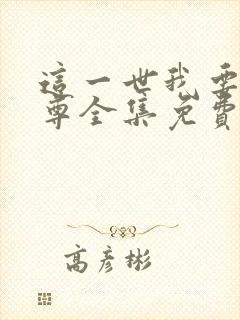 這一世我要
尊全集免費
高彥彬